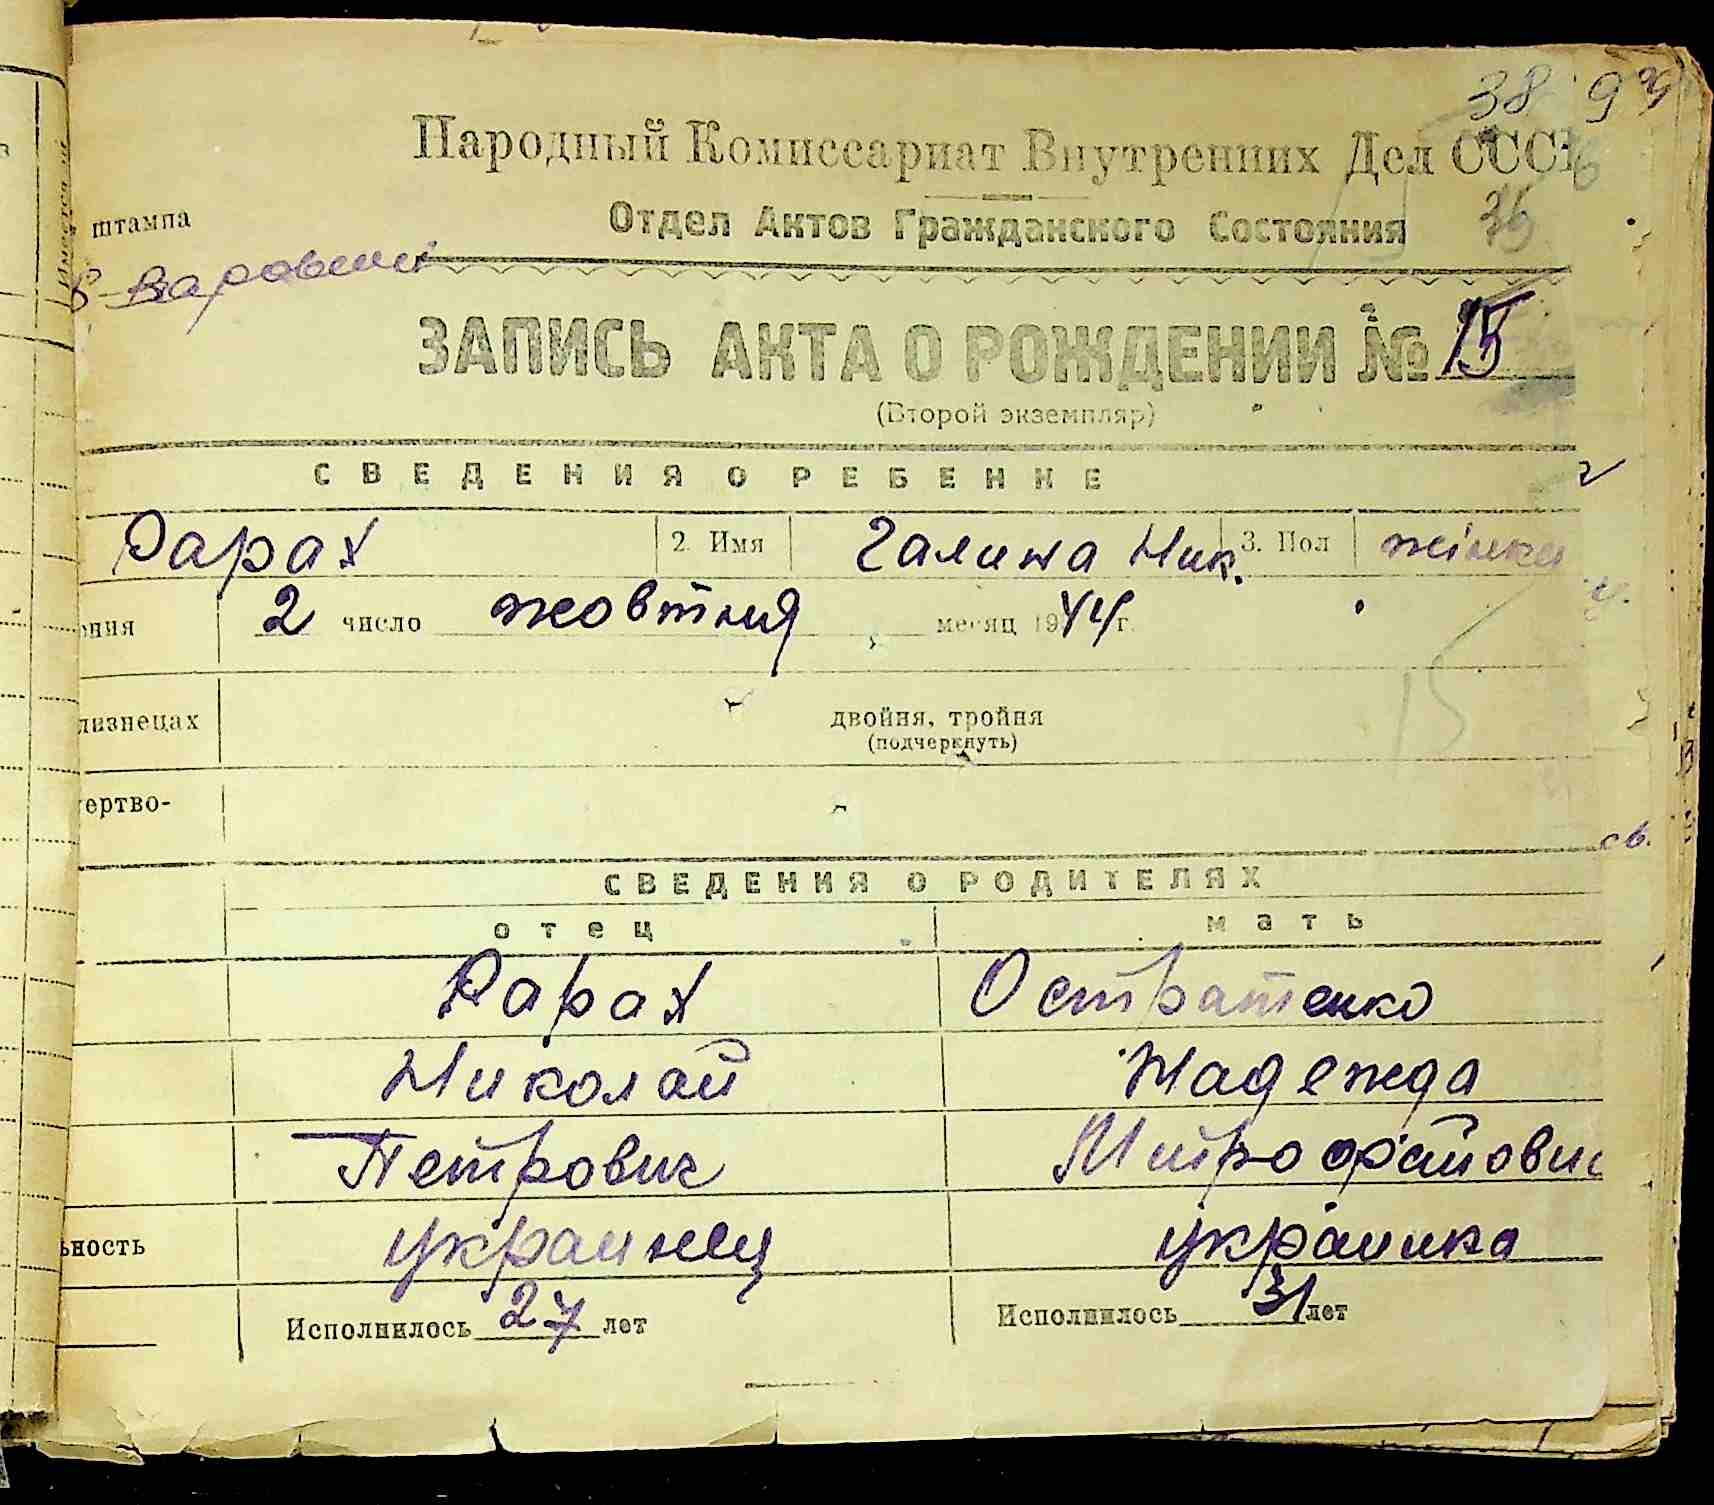 38 93
Народный Комиссариат Внутренних Дел СССР
36
штампа
Отдел Актов Гражданского Состояния
ЗАПИСЬ АКТА О РОЖДЕНИИ № 15
(Второй экземпляр)
СВЕДЕНИЯ О РЕБЕНКЕ
Рарах 2. Имя Галина Ник. 3. Пол жінка
ения 2 число жовтня месяц 1944 г.
лизнецах двойня, тройня
(подчеркнуть)
15
ертво-
св.
СВЕДЕНИЯ О РОДИТЕЛЯХ
отец мать
Рарах Остратенко
Николай Надежда
Петрович
ьность украинец украинка
Исполнилось 27 лет Исполнилось 31 лет